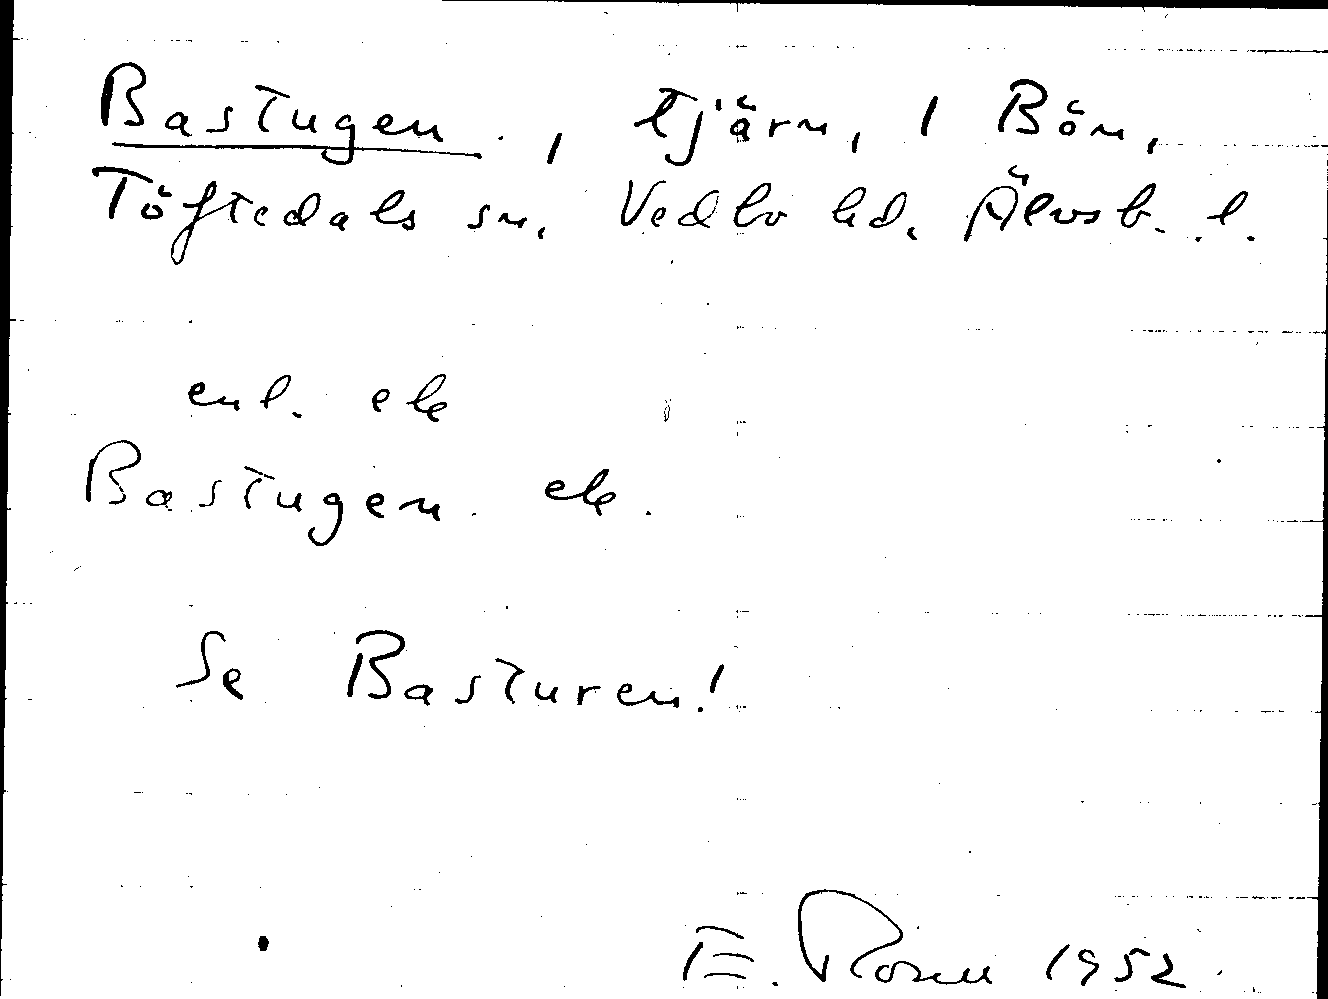 Bastugen, tjärn, 1 Bön,
Töftedals sn, Vedbo hd. Älvsb. l.
enl. ek
Bastugen ek.
Se Basturen!
E. Rosen 1952